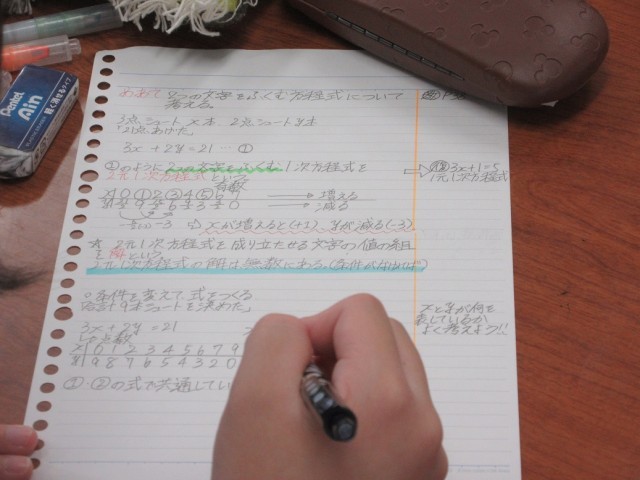 Pentel
Ain
めあて 2つの文字をふくむ方程式について
考える。
3点シュートx本、2点シュートy本
21点あげた。
3x+2y=21…①
①のように2つの文字をふくむ1次方程式を
2元1次方程式という
3x+1=5
1元1次方程式
増える
減る
xが増えると(+2)、yが減る(-3)。
☆ 2元1次方程式を成り立たせる文字の値の組
を解という
2元1次方程式の解は無数にある。
○条件を変えて、式をつくる
合計9本シュートを決めた
3x+2y=21
xとyが何を
表しているか
よく考えよう!!
x 0 1 2 3 4 5 6 7 9
y 9 8 7 6 5 4 3 2 0
①・②の式で共通してい